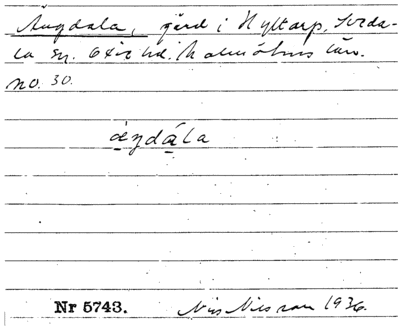 Ängdala, gård i Hyltarp, Svedala
sn. Oxie hd. Malmöhus län.
no. 30.
Nr 5743. Nils Nilsson 1936.